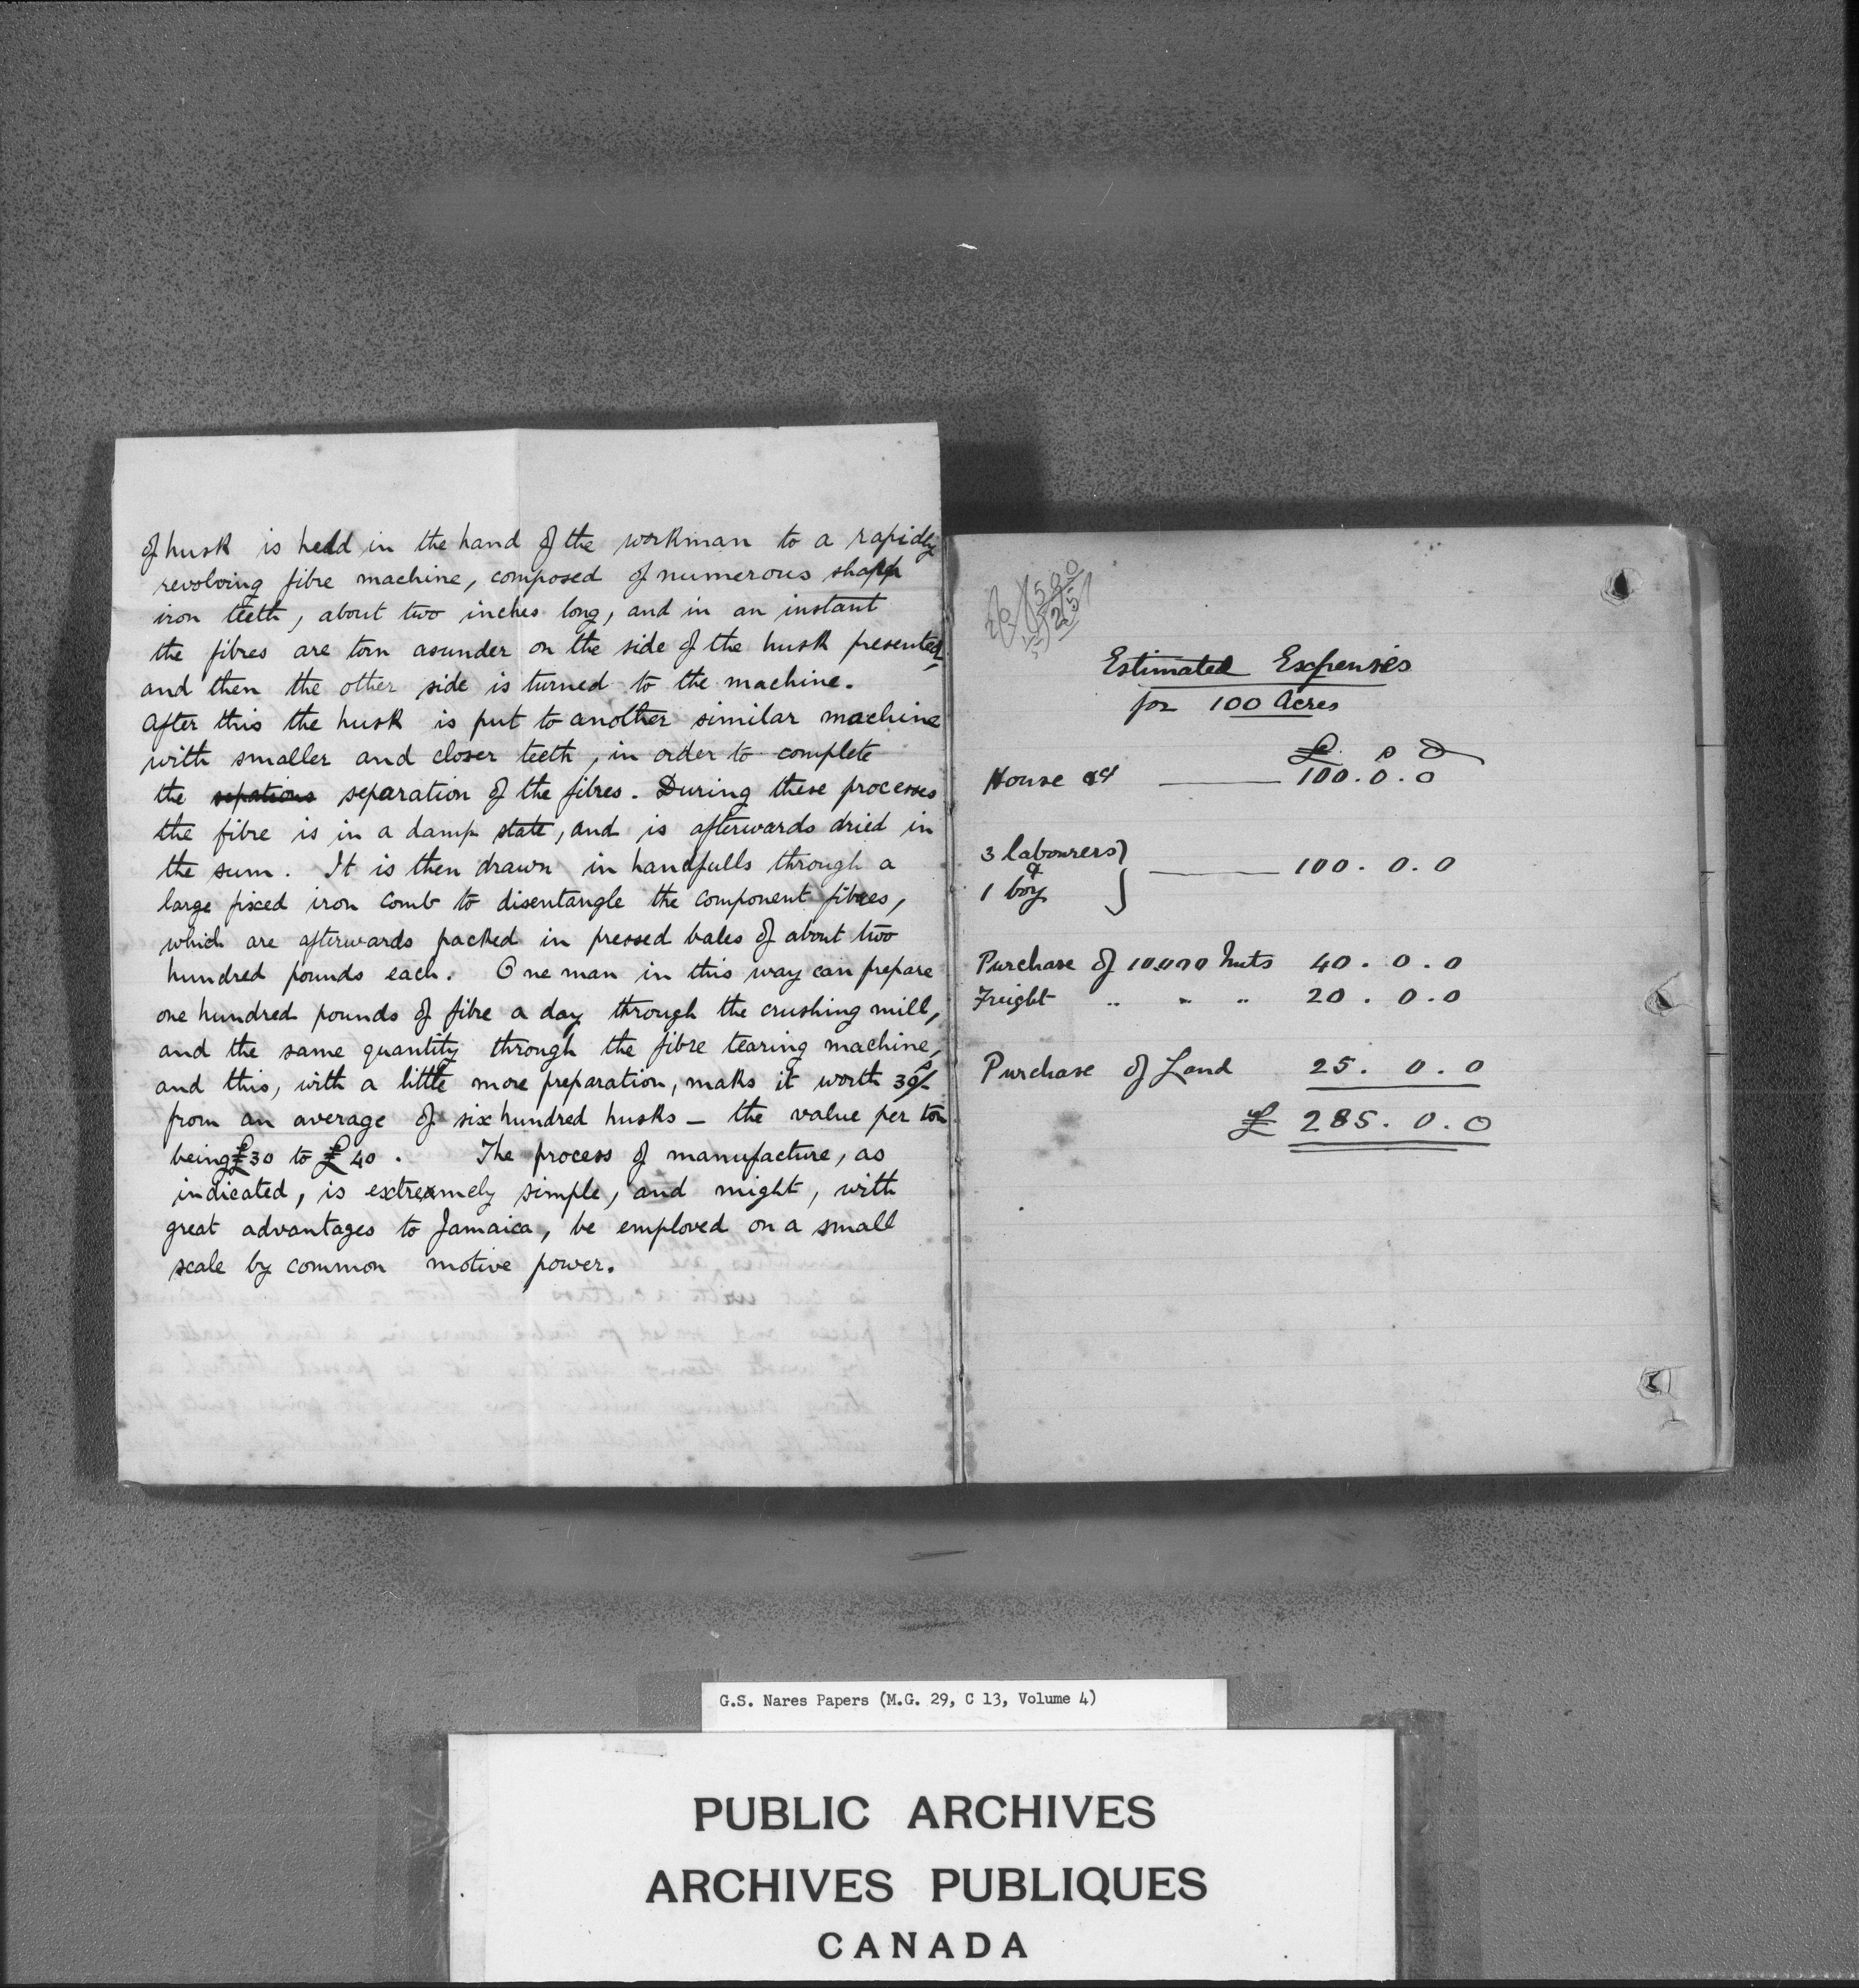 of husk is held in the hand of the workman to a rapidly
revolving fibre machine, composed of numerous sharp
iron teeth, about two inches long, and in an instant
the fibres are torn asunder on the side of the husk presented,
and then the other side is turned to the machine.
After this the husk is put to another similar machine
with smaller and closer teeth, in order to complete
the separation of the fibres. During these processes
the fibre is in a damp state, and is afterwards dried in
the sun. It is then drawn in handfulls through a
large fixed iron comb to disentangle the component fibres,
which are afterwards packed in pressed bales of about two
hundred pounds each. One man in this way can prepare
one hundred pounds of fibre a day through the crushing mill,
and the same quantity through the fibre tearing machine,
and this, with a little more preparation, maks it worth
from an average of six hundred husks – the value per ton
being £30 to £40. The process of manufacture, as
indicated, is extremely simple, and might, with
great advantages to Jamaica, be employed on a small
scale by common motive power.
Estimated Expenses
for 100 Acres
£ s d
House 100.0.0
3 labourers
&
1 boy 100.0.0
Purchase of 10,000 Nuts 40.0.0
Freight " " " 20.0.0
Purchase of Land 25.0.0
£ 285.0.0
G.S. Nares Papers (M.G. 29, C 13, Volume 4)
PUBLIC ARCHIVES
ARCHIVES PUBLIQUES
CANADA